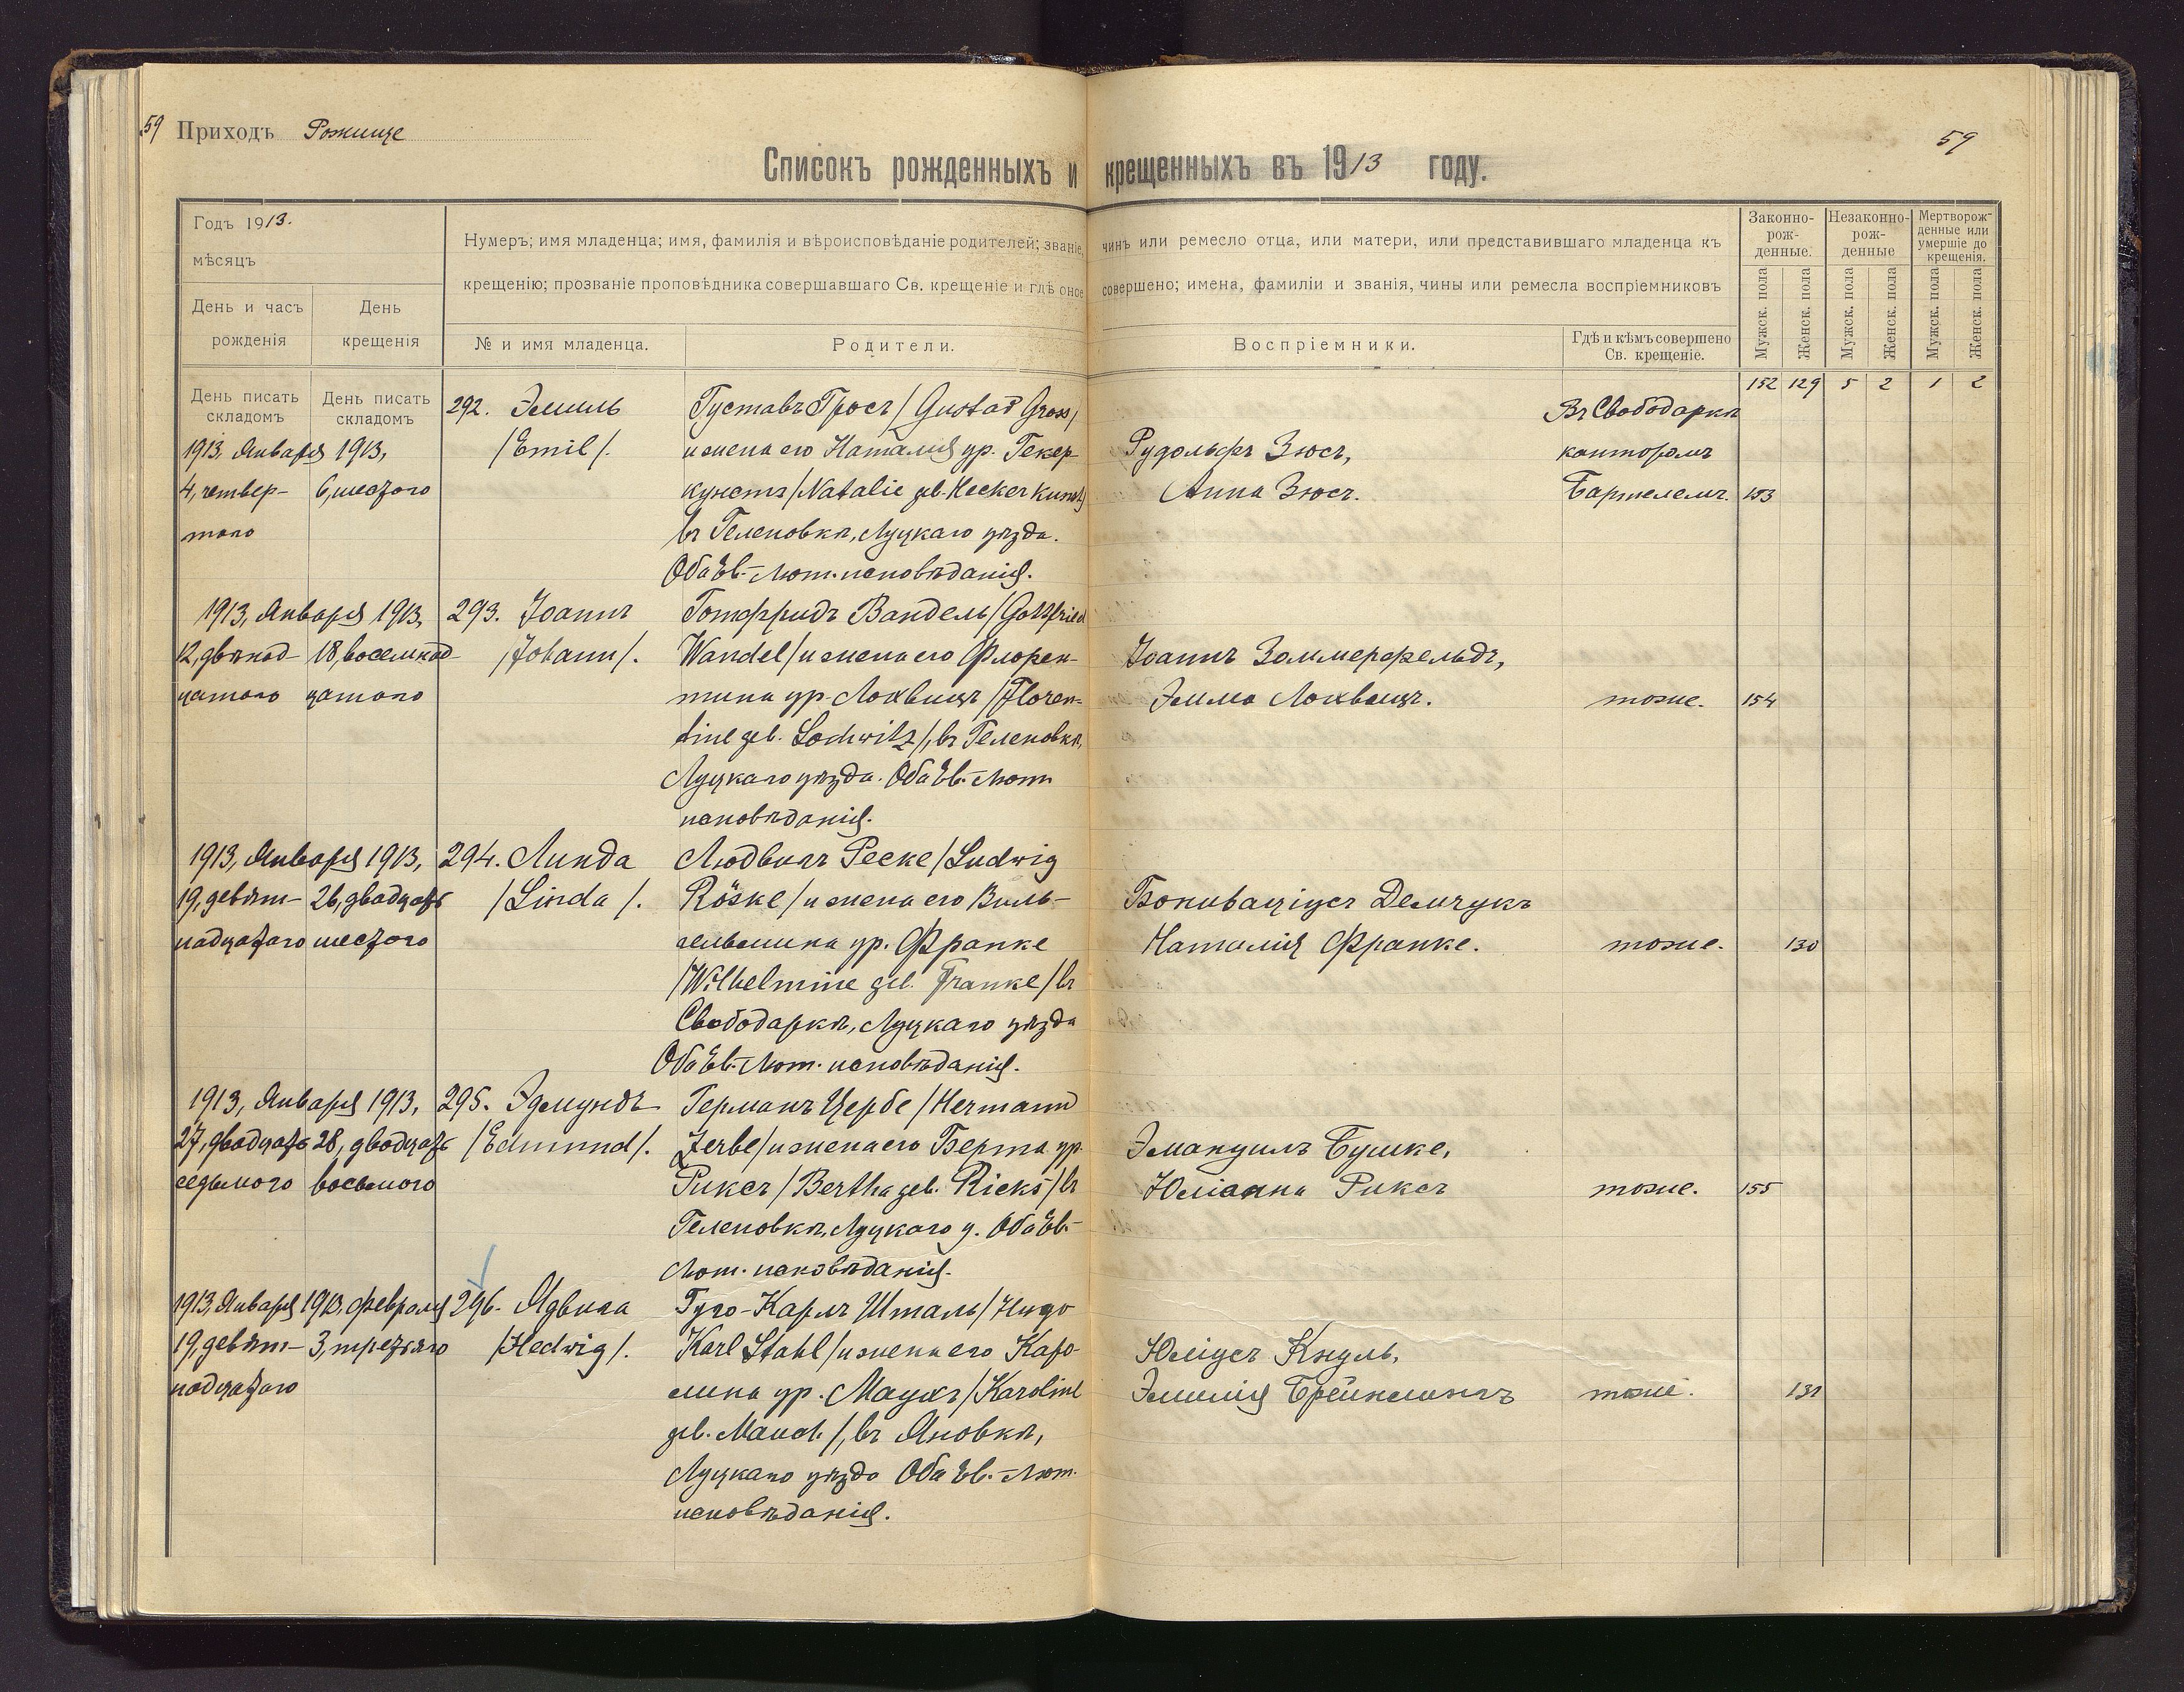 59 Приходъ Рожище
59
Списокъ рожденныхъ и крещенныхъ въ 1913 году.
Годъ 1913.
мѣсяцъ
День и часъ рожденія
День крещенія
Нумеръ; имя младенца; имя, фамилія и вѣроисповѣданіе родителей; званіе, чинъ или ремесло отца, или матери, или представившаго младенца къ
крещенію; прозваніе проповѣдника совершавшаго Св. крещеніе и гдѣ оное совершено; имена, фамиліи и званія, чины или ремесла воспріемниковъ
№ и имя младенца.
Родители.
Воспріемники.
Гдѣ и кѣмъ совершено
Св. крещеніе.
Законно-
рож-
денные.
Незаконно-
рож-
денные
Мертворож-
денные или
умершіе до
крещенія.
Мужск. пола
Женск. пола
Мужск. пола
Женск. пола
Мужск. пола
Женск. пола
152 129 5 2 1 2
День писать
складомъ
День писать
складомъ
1913, Января 1913,
4, четвер- 6, шестого
таго
292. Эмиль
/Emil/.
Густавъ Гросъ /Gustav Gross/
и жена его Наталія ур. Гекер-
кунстъ /Natalie geb. Heckerkunst/
въ Геленовкѣ, Луцкаго уѣзда.
Оба Ев.-Лют. исповѣданія.
Рудольфъ Зюсъ,
Анна Зюсъ.
Въ Свободаркѣ
канторомъ
Бартелемъ.
153
1913, Января 1913,
12, двѣнад- 18, восемнад-
цатаго цатаго
293. Іоаннъ
/Johann/.
Готфридъ Вандель /Gottfried
Wandel/ и жена его Флорен-
тина ур. Лохвицъ /Floren-
tine geb. Lochwitz/, въ Геленовкѣ,
Луцкаго уѣзда. Оба Ев.-Лют.
исповѣданія.
Іоаннъ Зоммерфельдъ,
Эмма Лохвицъ.
тоже.
154
1913, Января 1913,
19, девят- 26, двадцать
надцатаго шестого
294. Линда
/Linda/.
Людвигъ Реске /Ludwig
Röske/ и жена его Виль-
гельмина ур. Франке
/Wilhelmine geb. Franke/ въ
Свободаркѣ, Луцкаго уѣзда
Оба Ев.-Лют. исповѣданія.
Бонивацiусъ Демчукъ
Наталія Франке.
тоже.
130
1913, Января 1913,
27, двадцать 28, двадцать
седьмого восьмого
295. Эдмундъ
/Edmund/.
Германъ Цербе /Hermann
Zerbe/ и жена его Берта ур.
Риксъ /Bertha geb. Ricks/ въ
Геленовкѣ, Луцкаго у. Оба Ев.-
Лют. исповѣданія.
Эмануилъ Бушке,
Юліанна Риксъ
тоже.
155
1913, Января 1913, февраля
19, девят- 3, третьяго
надцатаго
296. Ядвига
/Hedwig/.
Гуго-Карлъ Шталь /Hugo
Karl Stahl/ и жена его Каро-
лина ур. Маухъ /Karoline
geb. Mauch/, въ Яновкѣ,
Луцкаго уѣзда Оба Ев.-Лют.
исповѣданія.
Юліусъ Кнуль,
Эмилія Брейкшингъ
тоже.
131